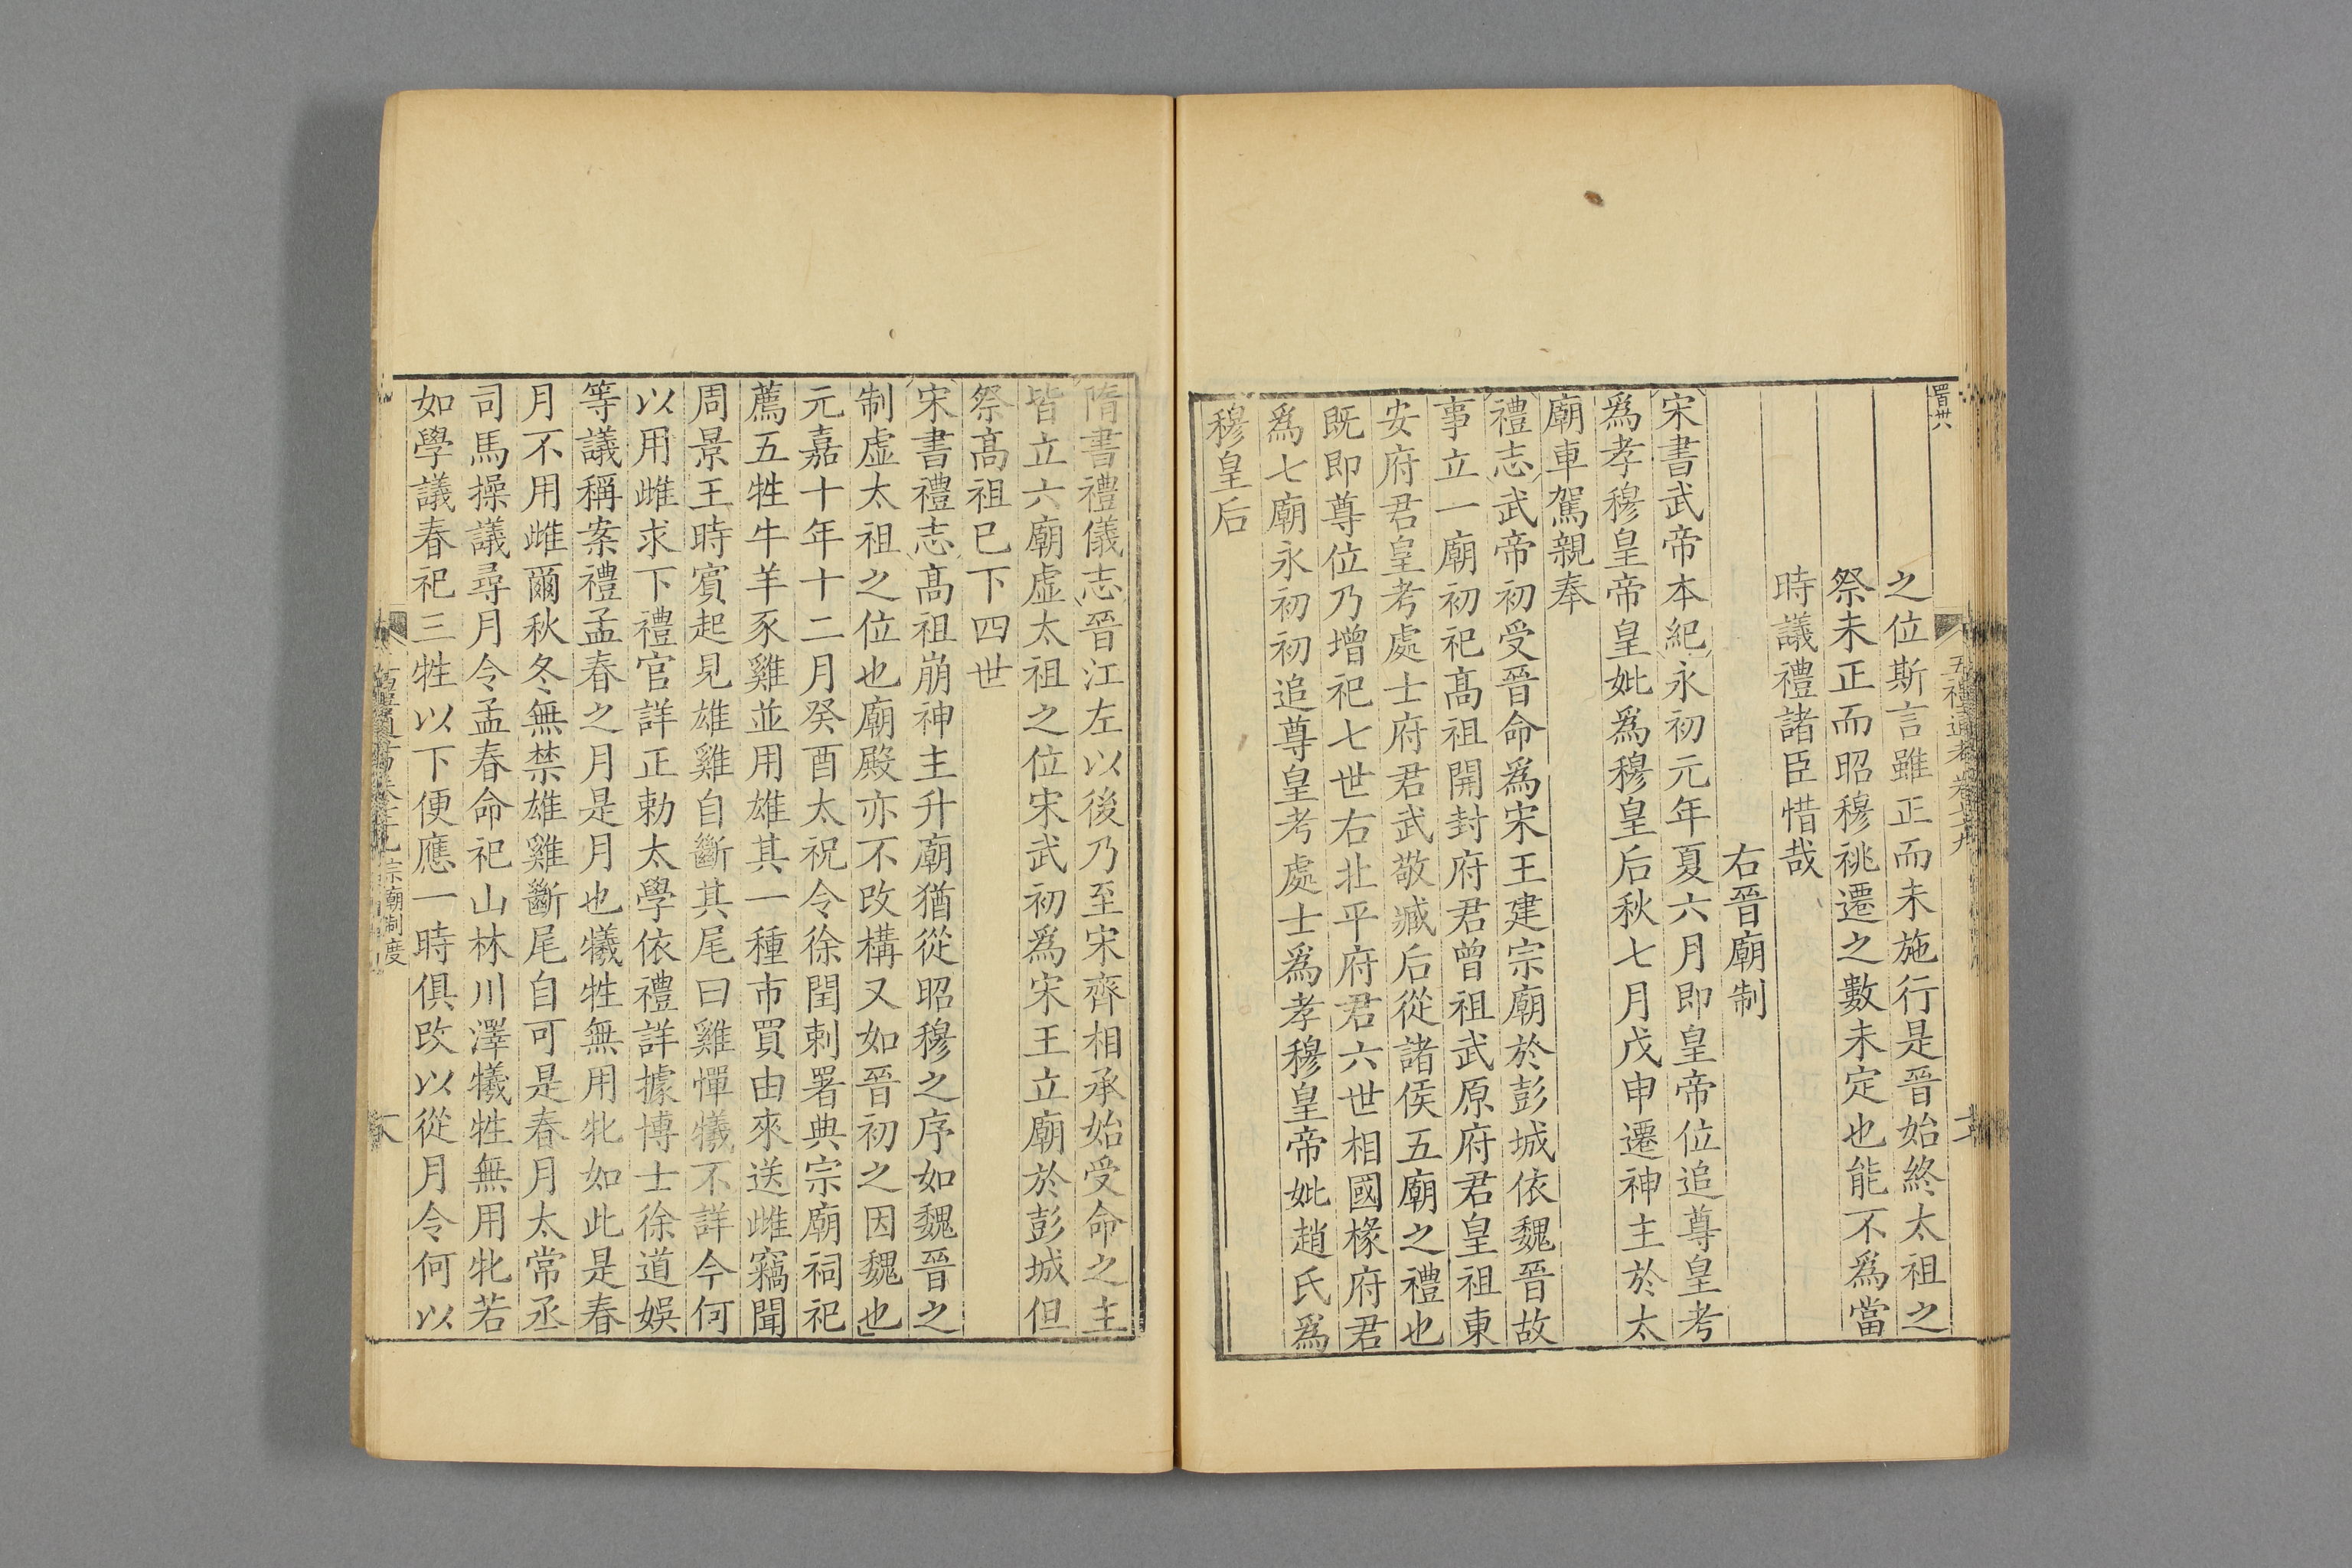 之位斯言雖正而未施行是晉始終太祖之
祭未正而昭穆祧遷之數未定也能不爲當
時議禮諸臣惜哉
右晉廟制
宋書武帝本紀永初元年夏六月即皇帝位追尊皇考
爲孝穆皇帝皇妣爲穆皇后秋七月戊申遷神主於太
廟車駕親奉
禮志武帝初受晉命爲宋王建宗廟於彭城依魏晉故
事立一廟初祀高祖開封府君曾祖武原府君皇祖東
安府君皇考處士府君武敬臧后從諸侯五廟之禮也
既即尊位乃增祀七世右北平府君六世相國椽府君
爲七廟永初初追尊皇考處士爲孝穆皇帝妣趙氏爲
穆皇后
隋書禮儀志晉江左以後乃至宋齊相承始受命之主
皆立六廟虛太祖之位宋武初爲宋王立廟於彭城但
祭高祖已下四世
宋書禮志高祖崩神主升廟猶從昭穆之序如魏晉之
制虛太祖之位也廟殿亦不改構又如晉初之因魏也
元嘉十年十二月癸酉太祝令徐閏刺署典宗廟祠祀
薦五牲牛羊豕雞並用雄其一種市買由來送雌竊聞
周景王時賓起見雄雞自斷其尾曰雞憚犧不詳今何
以用雌求下禮官詳正勅太學依禮詳據博士徐道娛
等議稱案禮孟春之月是月也犧牲無用牝如此是春
月不用雌爾秋冬無禁雄雞斷尾自可是春月太常丞
司馬操議尋月令孟春命祀山林川澤犧牲無用牝若
如學議春祀三牲以下便應一時俱改以從月令何以
五禮通考卷
宗廟制度